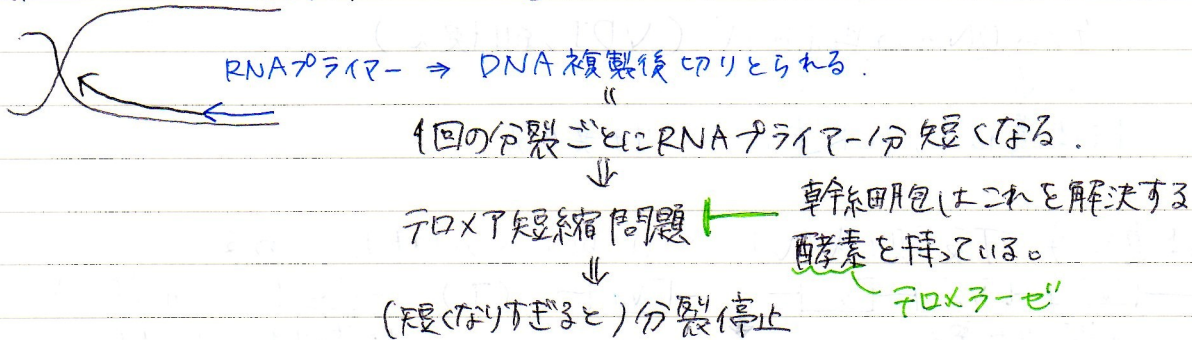 RNAプライマー ⇒ DNA複製後切りとられる.
〃
1回の分裂ごとにRNAプライマー分短くなる.
⇓
テロメア短縮問題
幹細胞はこれを解決する
酵素を持っている。
テロメラーゼ
⇓
(短くなりすぎると)分裂停止